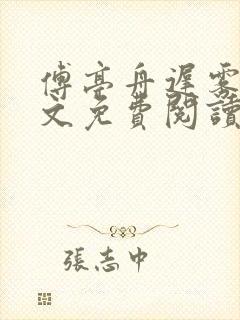 傅亭舟遲霧
文免費閱讀
張志中